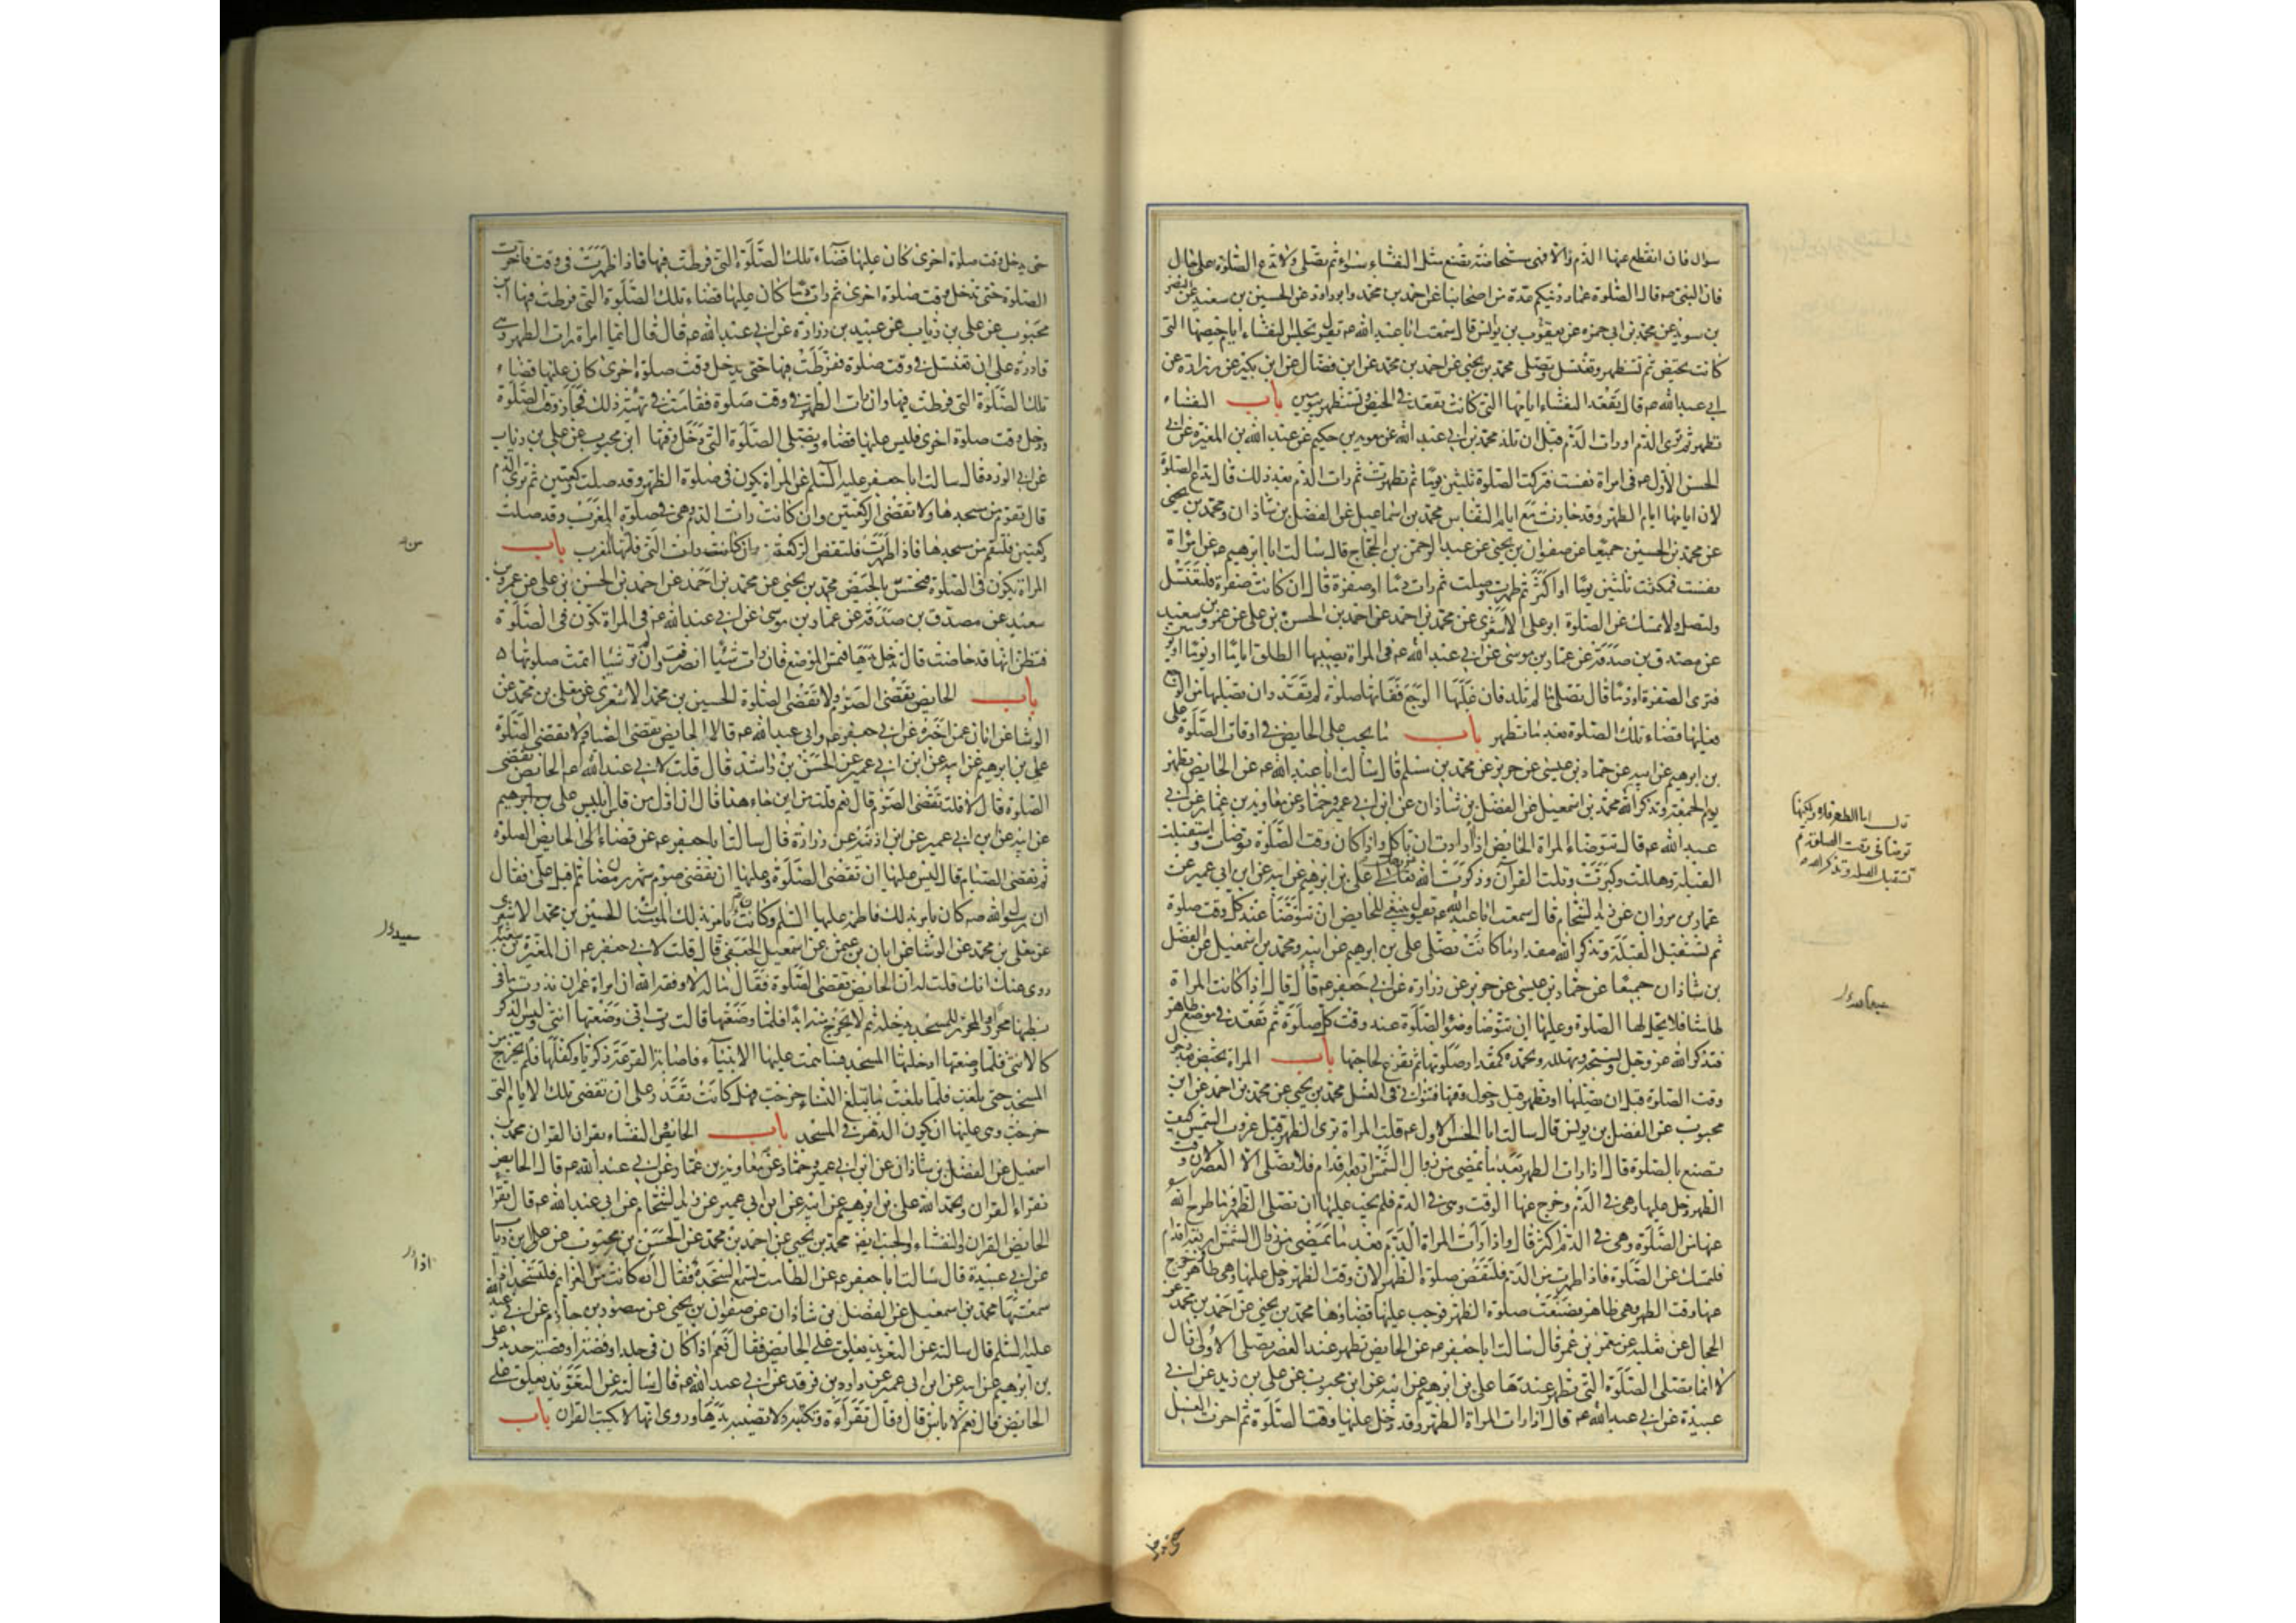 سواء فان انقطع عنها الدم والا فهى مستحاضة تصنع مثل النفساء سواء ثم تصلى ولا تدع الصلوة على حال
فان النبى صه قال الصلوة عماد دينكم عدة من اصحابنا عن احمد بن محمد وابو داود عن الحسين بن سعيد عن النضر
بن سويد عن محمد بن ابى حمزه عن يعقوب بن يونس قال سمعت ابا عبد الله عه يقول تجلس النفساء ايام حيضها التى
كانت تحيض ثم تستظهر وتغتسل وتصلى محمد بن يحيى عن احمد بن محمد عن ابن فضال عن ابن بكير عن زرارة عن
ابى عبد الله عه قال تقعد النفساء ايامها التى كانت تقعد فى الحيض وتستظهر بيومين باب النفساء
تطهر ثم ترى الدم او رات الدم قبل ان تلد محمد بن ابى عبد الله عن معوية بن حكيم عن عبد الله بن المغيرة عن ابى
الحسن الاول عه فى امراة نفست فتركت الصلوة ثلثين يوما ثم تطهرت ثم رات الدم بعد ذلك قال تدع الصلوة
لان ايامها ايام الطهر وقد جازت مع ايام النفاس محمد بن اسماعيل عن الفضل بن شاذان ومحمد بن يحيى
عن محمد بن الحسين جميعا عن صفوان بن يحيى عن عبد الرحمن بن الحجاج قال سالت ابا ابرهيم عه عن امراة
نفست فمكثت ثلثين يوما او اكثر ثم طهرت وصلت ثم رات دما او صفرة قال ان كانت صفرة فلتغتسل
ولتصل ولا تمسك عن الصلوة ابو على الاشعرى عن محمد بن احمد عن احمد بن الحسن بن على عن عمرو بن سعيد
عن مصدق بن صدقة عن عمار بن موسى عن ابى عبد الله عه فى المراة يصيبها الطلق اياما او يوما او يومين
فترى الصفرة او دما قال تصلى ما لم تلد فان غلبها الوجع ففاتها صلوة لم تقدر ان تصليها من الوجع
فعليها قضاء تلك الصلوة بعد ما تطهر باب ما يجب على الحايض فى اوقات الصلوة على
بن ابرهيم عن ابيه عن حماد بن عيسى عن حريز عن محمد بن مسلم قال سالت ابا عبد الله عه عن الحايض تطهر
يوم الجمعة وتذكر الله محمد بن اسمعيل عن الفضل بن شاذان عن ابن ابى عمير وحماد عن معاوية بن عمار عن ابى
عبد الله عه قال تتوضاء المراة الحايض اذا ارادت ان تاكل واذا كان وقت الصلوة توضات واستقبلت
القبلة وهللت وكبرت وتلت القران وذكرت الله تعالى على بن ابرهيم عن ابيه عن ابن ابى عمير عن
عمار بن مروان عن زيد الشحام قال سمعت ابا عبد الله عه يقول ينبغى للحايض ان تتوضا عند كل وقت صلوة
ثم تستقبل القبلة وتذكر الله مقدار ما كانت تصلى على بن ابرهيم عن ابيه ومحمد بن اسمعيل عن الفضل
بن شاذان جميعا عن حماد بن عيسى عن حريز عن زرارة عن ابى جعفر عه قال قال اذا كانت المراة
طامثا فلا يحل لها الصلوة وعليها ان تتوضا وضؤ الصلوة عند وقت كل صلوة ثم تقعد فى موضع طاهر
فتذكر الله عز وجل وتسبحه وتهلله وتحمده كمقدار صلوتها ثم تفرغ لحاجتها باب المراة تحيض بعد دخول
وقت الصلوة قبل ان تصليها او تطهر قبل دخول وقتها فتتوانى فى الغسل محمد بن يحيى عن محمد بن احمد عن ابن
محبوب عن الفضل بن يونس قال سالت ابا الحسن الاول عه قلت المراة ترى الطهر قبل غروب الشمس كيف
تصنع بالصلوة قال اذا رات الطهر بعد ما يمضى من زوال الشمس اربعة اقدام فلا تصلى الا العصر لان وقت
الظهر دخل عليها وهى فى الدم وخرج عنها الوقت وهى فى الدم فلم يجب عليها ان تصلى الظهر وما طرح الله
عنها من الصلوة وهى فى الدم اكثر قال واذا رات المراة الدم بعد ما يمضى من زوال الشمس اربعة اقدام
فلتمسك عن الصلوة فاذا طهرت من الدم فلتقض صلوة الظهر لان وقت الظهر دخل عليها وهى طاهر وخرج
عنها وقت الظهر وهى طاهر فضيعت صلوة الظهر فوجب عليها قضاؤها محمد بن يحيى عن احمد بن محمد عن
الحجال عن ثعلبة عن معمر بن عمر قال سالت ابا جعفر عه عن الحايض تطهر عند العصر تصلى الاولى قال
لا انما تصلى الصلوة التى تطهر عندها على بن ابرهيم عن ابيه عن ابن محبوب عن على بن زيد عن ابى
عبيدة عن ابى عبد الله عه قال اذا رات المراة الطهر وقد دخل عليها وقت الصلوة ثم اخرت الغسل
قال اما الطهر فلا ولكنها
توضا فى وقت الصلوة ثم
تستقبل القبلة وتذكر الله
حتى يدخل
حتى يدخل وقت صلوة اخرى كان عليها قضاء تلك الصلوة التى فرطت فيها فاذا طهرت فى وقت فاخرت
الصلوة حتى تدخل وقت صلوة اخرى ثم رات دما كان عليها قضاء تلك الصلوة التى فرطت فيها ابن
محبوب عن على بن رئاب عن عبيد بن زرارة عن ابى عبد الله عه قال قال ايما امراة رات الطهر وهى
قادرة على ان تغتسل فى وقت صلوة ففرطت فيها حتى يدخل وقت صلوة اخرى كان عليها قضاء
تلك الصلوة التى فرطت فيها وان رات الطهر فى وقت صلوة فقامت فى تهيئة ذلك فجاز وقت الصلوة
ودخل وقت صلوة اخرى فليس عليها قضاء وتصلى الصلوة التى دخل وقتها ابن محبوب عن على بن رئاب
عن ابى الورد قال سالت ابا جعفر عليه السلم عن المراة يكون فى صلوة الظهر وقد صلت ركعتين ثم ترى الدم
قال تقوم من مسجدها ولا تقضى الركعتين وان كانت رات الدم وهى فى صلوة المغرب وقد صلت
ركعتين فلتقم من مسجدها فاذا طهرت فلتقض الركعة التى فاتتها من المغرب باب
المراة يكون فى الصلوة فتحس بالحيض محمد بن يحيى عن محمد بن احمد عن احمد بن الحسن بن على عن عمرو بن
سعيد عن مصدق بن صدقة عن عمار بن موسى عن ابى عبد الله عه فى المراة تكون فى الصلوة
فتظن انها قد حاضت قال تدخل يدها فتمس الموضع فان رات شيئا انصرفت وان لم تر شيئا اتمت صلوتها
باب الحايض تقضى الصوم ولا تقضى الصلوة الحسين بن محمد الاشعرى عن معلى بن محمد عن
الوشا عن ابان عمن اخبره عن ابى جعفر عه وابى عبد الله عه قالا الحايض تقضى الصيام ولا تقضى الصلوة
على بن ابرهيم عن ابيه عن ابن ابى عمير عن الحسن بن راشد قال قلت لابى عبد الله عه الحايض تقضى
الصلوة قال لا قلت تقضى الصوم قال نعم قلت من اين جاء هذا قال ان اول من قاس ابليس على بن ابرهيم
عن ابيه عن ابن ابى عمير عن ابن اذينة عن زرارة قال سالت ابا جعفر عه عن قضاء الحايض الصلوة
ثم تقضى الصيام قال ليس عليها ان تقضى الصلوة وعليها ان تقضى صوم شهر رمضان ثم اقبل على فقال
ان رسول الله صه كان يامر بذلك فاطمة عليها السلم وكانت تامر بذلك المومنات الحسين بن محمد الاشعرى
عن معلى بن محمد عن الوشا عن ابان بن عيسى عن اسمعيل الجعفى قال قلت لابى جعفر عه ان المغيرة بن سعيد
روى عنك انك قلت له ان الحايض تقضى الصلوة فقال ماله لا وفقه الله ان امراة عمران نذرت ما فى
بطنها محررا والمحرر للمسجد يدخله ثم لا يخرج منه ابدا فلما وضعتها قالت رب انى وضعتها انثى وليس الذكر
كالانثى فلما وضعتها ادخلتها المسجد فساهمت عليها الانبياء فاصابت القرعة زكريا وكفلها فلم يخرج من
المسجد حتى بلغت فلما بلغت ما تبلغ النساء خرجت فهل كانت تقدر على ان تقضى تلك الايام التى
خرجت وهى عليها ان تكون الدهر فى المسجد باب الحايض والنفساء يقران القران محمد بن
اسمعيل عن الفضل بن شاذان عن ابن ابى عمير وحماد عن معاوية بن عمار عن ابى عبد الله عه قال الحايض
تقراء القران وتحمد الله على بن ابرهيم عن ابيه عن ابن ابى عمير عن زيد الشحام عن ابى عبد الله عه قال تقرا
الحايض القران والنفساء والجنب ايضا محمد بن يحيى عن احمد بن محمد عن الحسن بن محبوب عن على بن رياب
عن ابى عبيدة قال سالت ابا جعفر عه عن الطامث تسمع السجدة فقال ان كانت من العزائم فلتسجد اذا
سمعتها محمد بن اسمعيل عن الفضل بن شاذان عن صفوان بن يحيى عن منصور بن حازم عن ابى عبد الله
عليه السلم قال سالته عن التعويذ يعلق على الحايض فقال نعم اذا كان فى جلد او فضة او قصبة حديد على
بن ابرهيم عن ابيه عن ابن ابى عمير عن داود بن فرقد عن ابى عبد الله عه قال سالته عن التعويذ يعلق على
الحايض قال نعم لا باس قال وقال تقراه وتكتبه ولا تصيبه يدها وروى انها لا تكتب القران باب